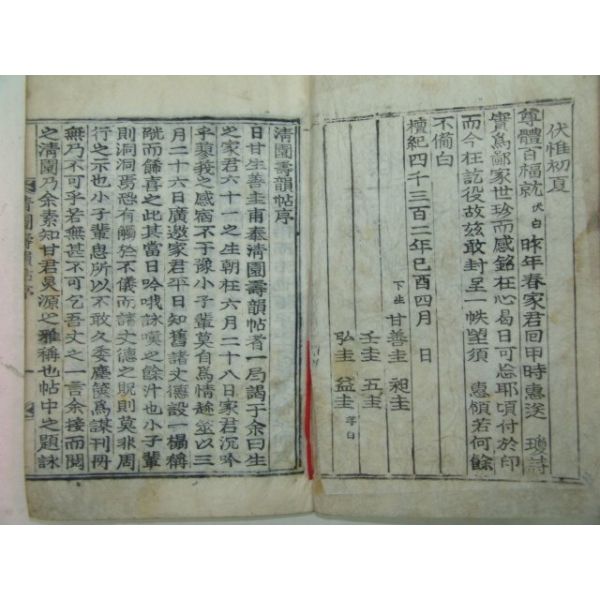 伏惟初夏
尊體百福就伏白昨年春家君回甲時惠送瓊詩
實爲鄙家世珍而感銘在心曷日可忘耶頃付於印
而今在訖役故玆敢封呈一帙望須惠領若何餘
不備白
檀紀四千三百二年己酉四月日
下生甘善圭昶圭
壬圭五圭
弘圭益圭等白
淸園壽韻帖序
日甘生善圭甫奉淸園壽韻帖者一局謁于余曰生
之家君六十一之生朝在六月二十八日家君沉吟
乎蓼莪之感宿不于豫小子輩莫自爲情趁筵以三
月二十六日廣邀家君平日知舊諸丈德設一榻稱
觥而餙喜之此其當日吟哦詠嘆之餘汁也小子輩
則洞洞焉恐有觸於不儀而諸丈德之貺則莫非周
行之示也小子輩息所以不敢久委塵篋爲謀刊冊
無乃不可乎若無甚不可乞吾丈之一言余接而閱
之淸園乃余素知甘君昊源之雅稱也帖中之題詠
淸園壽韻帖序
一